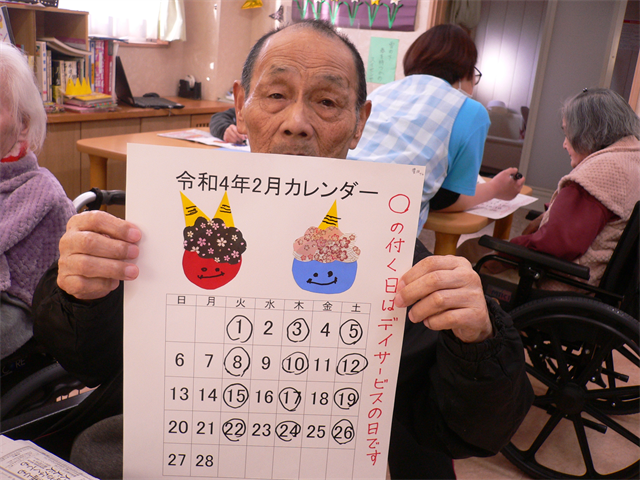 令和4年2月カレンダー
○の付く日はデイサービスの日です
日 月 火 水 木 金 土
1 2 3 4 5
6 7 8 9 10 11 12
13 14 15 16 17 18 19
20 21 22 23 24 25 26
27 28